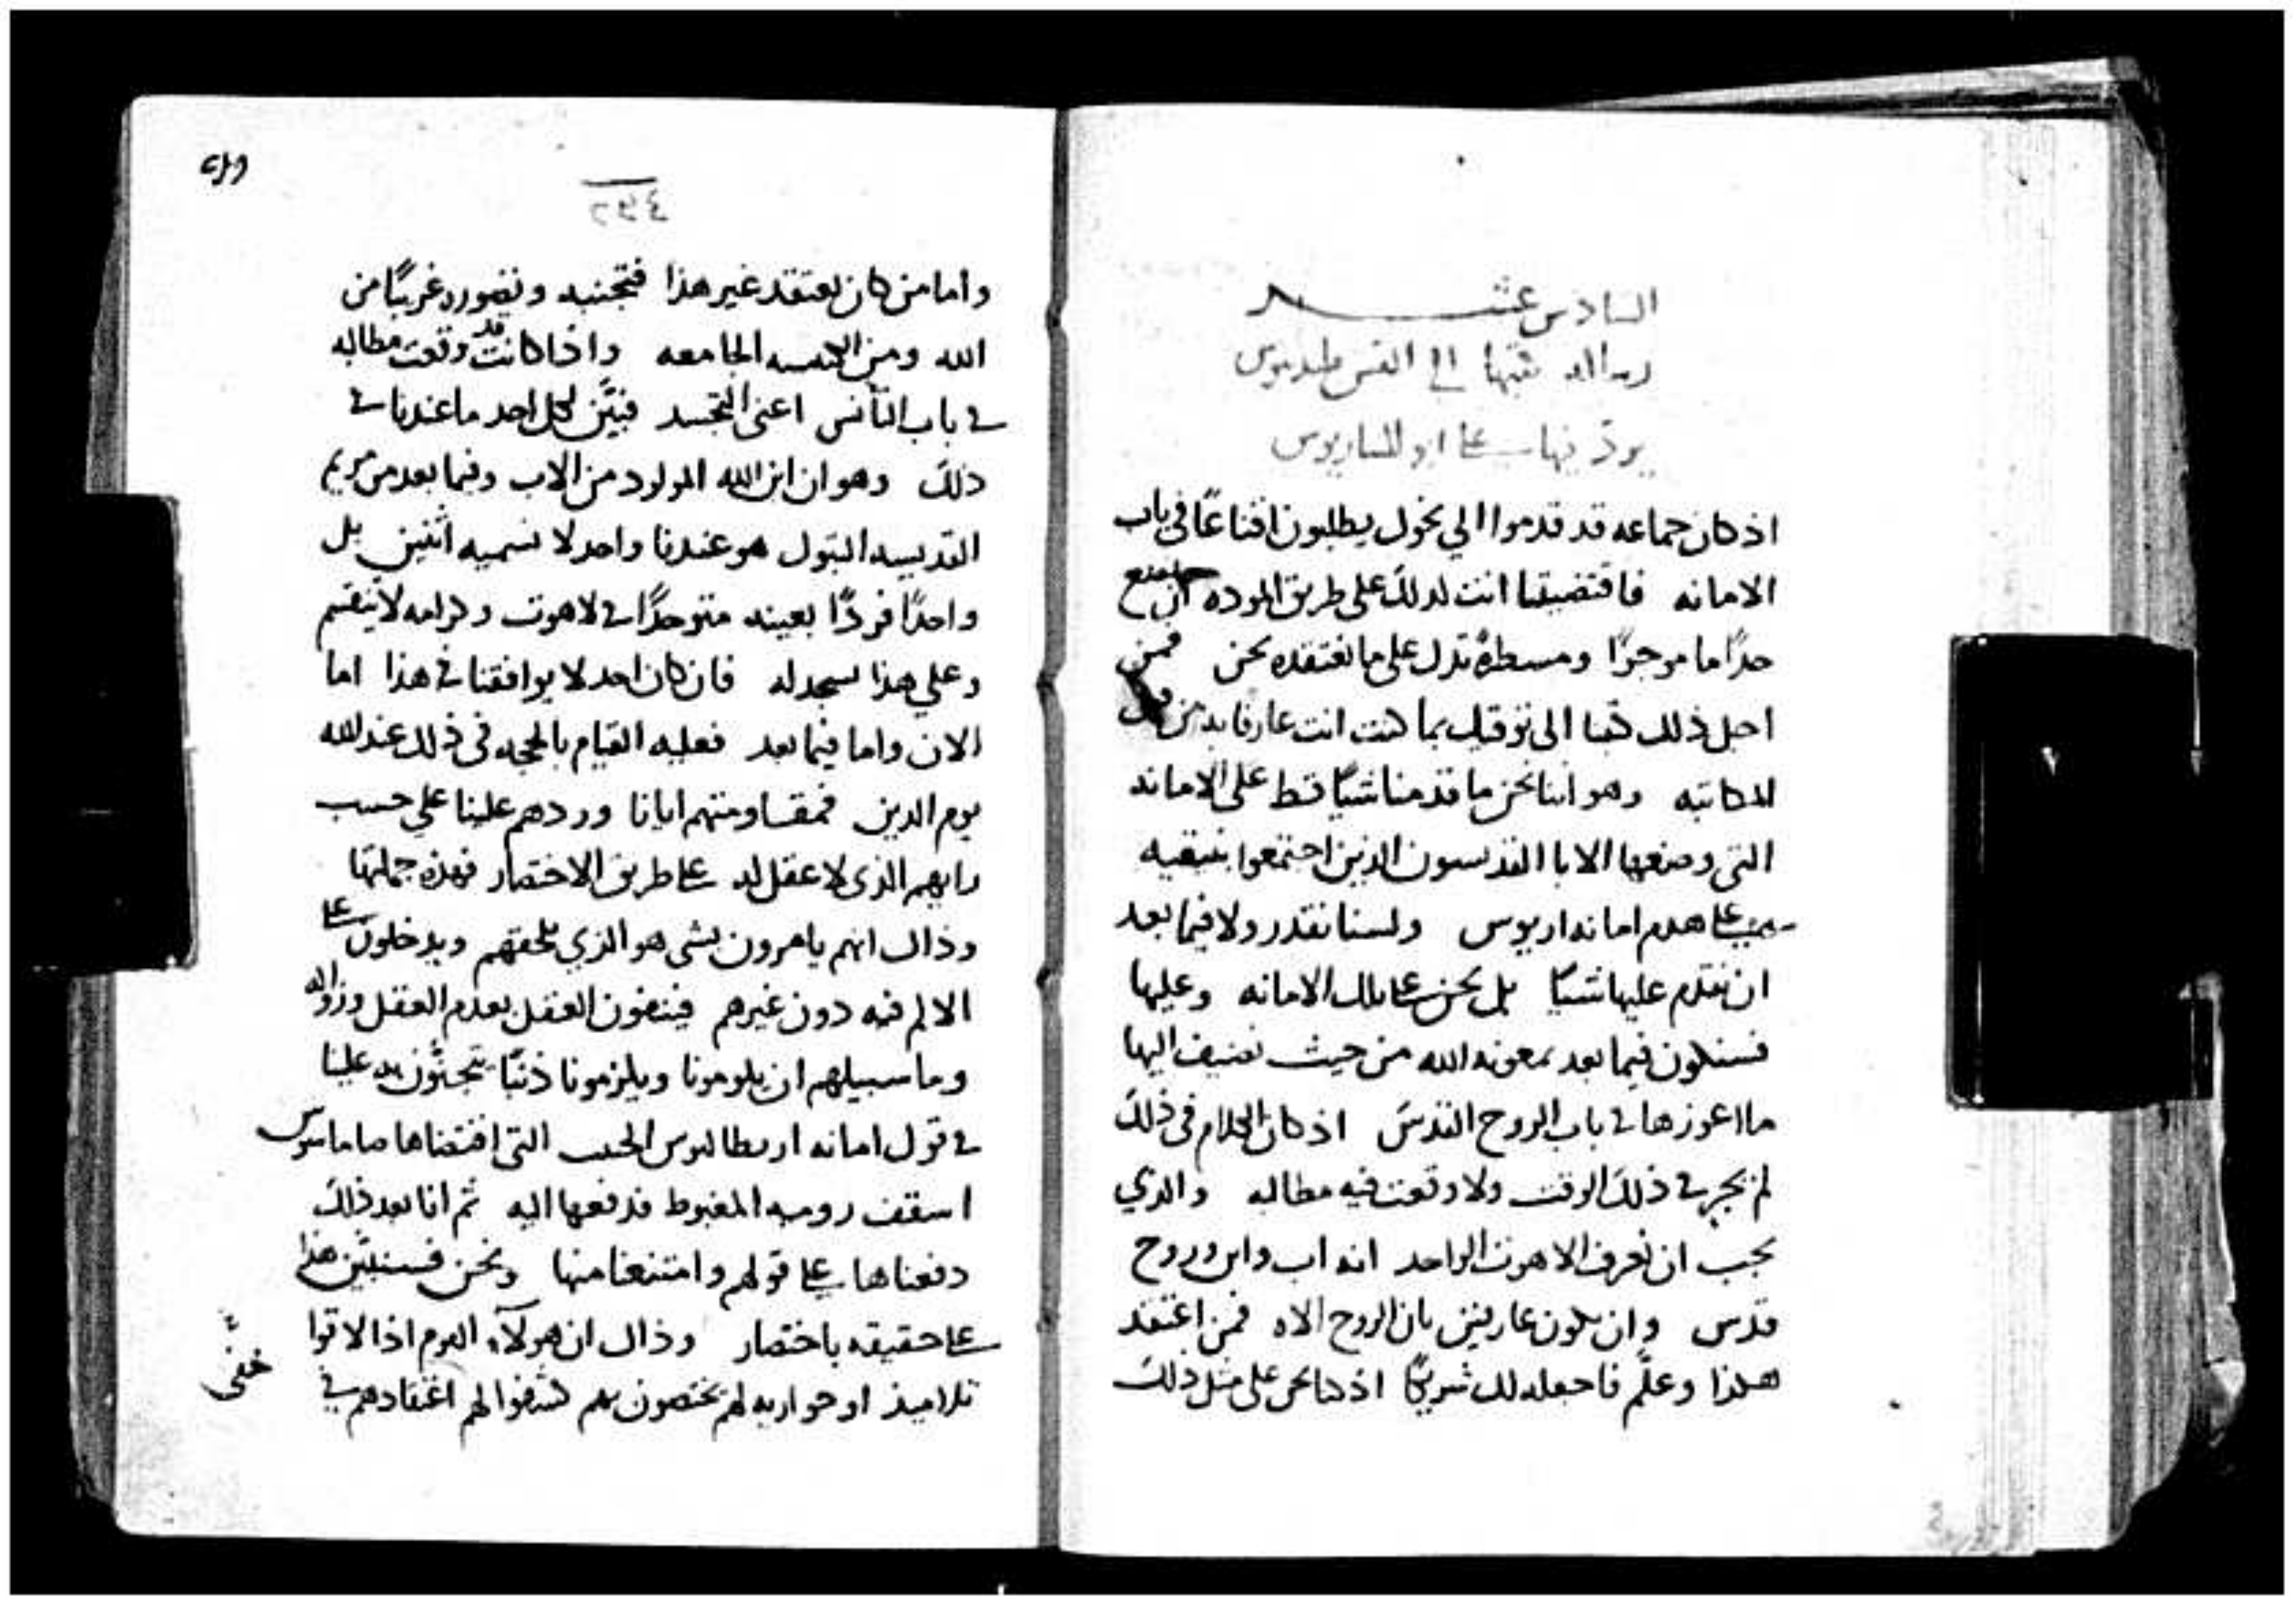 السادس عشر
رساله كتبها الى القس
يرد فيها على ابوليناريوس
اذ كان جماعه قد قدموا الي نحول يطلبون اقناعًا في باب
الامانه فاقتضيتنا انت لذلك على طريق الموده ان نضع
حدًا ما موجزًا ومسطرةً تدل على ما نعتقده نحن فمن
اجل ذلك كتبنا الى توقيك بما كنت انت عارفا به من قبل
المكاتبه وهو اننا نحن ما قدمنا شيًا قط على الامانه
التي وضعها الابا القديسون الذين اجتمعوا بنيقيه
بسبب هدم امانه اريوس ولسنا نقدر ولا فيما بعد
ان نقدم عليها شيًا بل نحن على تلك الامانه وعليها
فسنكون فيما بعد بمعونه الله من حيث نضيف اليها
ما اعوزها في باب الروح القدس اذ كان الكلام في ذلك
لم يجر في ذلك الوقت ولا وقعت فيه مطالبه والذي
يجب ان نعرف اللاهوت الواحد انه اب وابن وروح
قدس وان نكون عارفين بان الروح الاه فمن اعتقد
هكذا وعلّم فاجعله لك شريكًا اذ كنا نحن على مثل ذلك
٢٩٤
واما من كان يعتقد غير هذا فتجنبه وتصوره غريبًا من
الله ومن الكنيسه الجامعه واذا كانت قد وقعت مطالبه
في باب التأنس اعني التجسد فنبيّن لكل احد ما عندنا في
ذلك وهو ان ابن الله المولود من الاب وفيما بعد من مريم
القديسه البتول هو عندنا واحد لا نسميه اثنين بل
واحدًا فردًا بعينه متوحدًا في لاهوت وكرامه لا ينقسم
وعلي هذا نسجد له فان كان احد لا يوافقنا في هذا اما
الان واما فيما بعد فعليه القيام بالحجه في ذلك عند الله
يوم الدين فمقاومتهم ايانا وردهم علينا علي حسب
رايهم الذي لا عقل له على طريق الاختصار فهذه جملتها
وذاك انهم يامرون بشي هو الذي يلحقهم ويدخلون على
الالم فيه دون غيرهم فينفون العقل بعدم العقل وزواله
وما سبيلهم ان يلومونا ويلزمونا ذنبًا يتجنّون به علينا
في قول امانه الحبيب التي اقتضاها داماسوس
اسقف روميه المغبوط فدفعها اليه ثم انا بعد ذلك
دفعناها على قولهم وامتنعنا منها ونحن فسنبيّن هذا
على حقيقه باختصار وذاك ان هولآء القوم اذا لاقوا
تلاميذ او حواريه لهم يختصون بهم كشفوا لهم اعتقادهم في
خفي